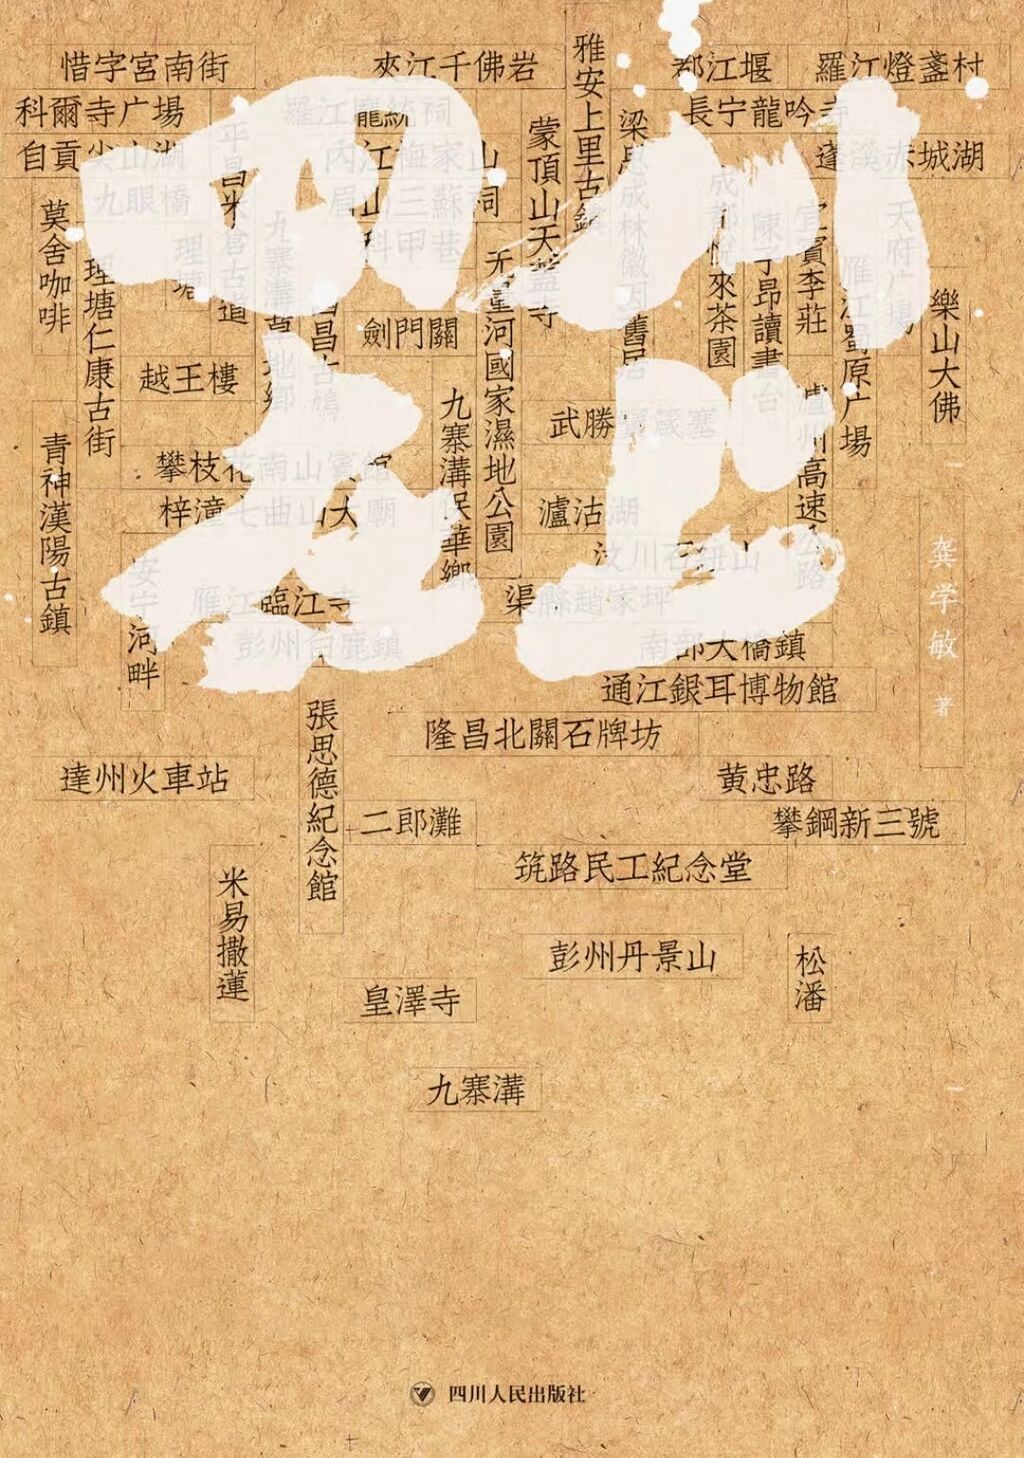 四川文本
龚学敏 著
惜字宮南街
夾江千佛岩
雅安上里古鎮
都江堰
羅江燈盞村
科爾寺广場
羅江龐統祠
長宁龍吟寺
自貢尖山湖
內江梅家山
蓬溪赤城湖
九眼橋
眉山三蘇祠
科甲巷
蒙頂山天蓋寺
梁思成林徽因舊居
天府广場
莫舍咖啡
理塘
理塘仁康古街
平昌米倉古道
西昌古鳩
若爾
河國家濕地公園
悅來茶園
陳子昂讀書台
宜賓李莊
雁江蜀原广場
樂山大佛
劍門關
越王樓
九寨溝保華鄉
武勝寶箴塞
瀘州高速公路
青神漢陽古鎮
攀枝花南山賓館
梓潼七曲山大廟
瀘沽湖
汶川石紐山
安宁河畔
雁江
臨江寺
渠縣趙家坪
彭州白鹿鎮
南部大橋鎮
通江銀耳博物館
張思德紀念館
隆昌北關石牌坊
達州火車站
黄忠路
二郎灘
攀鋼新三號
筑路民工紀念堂
米易撒蓮
彭州丹景山
松潘
皇澤寺
九寨溝
四川人民出版社